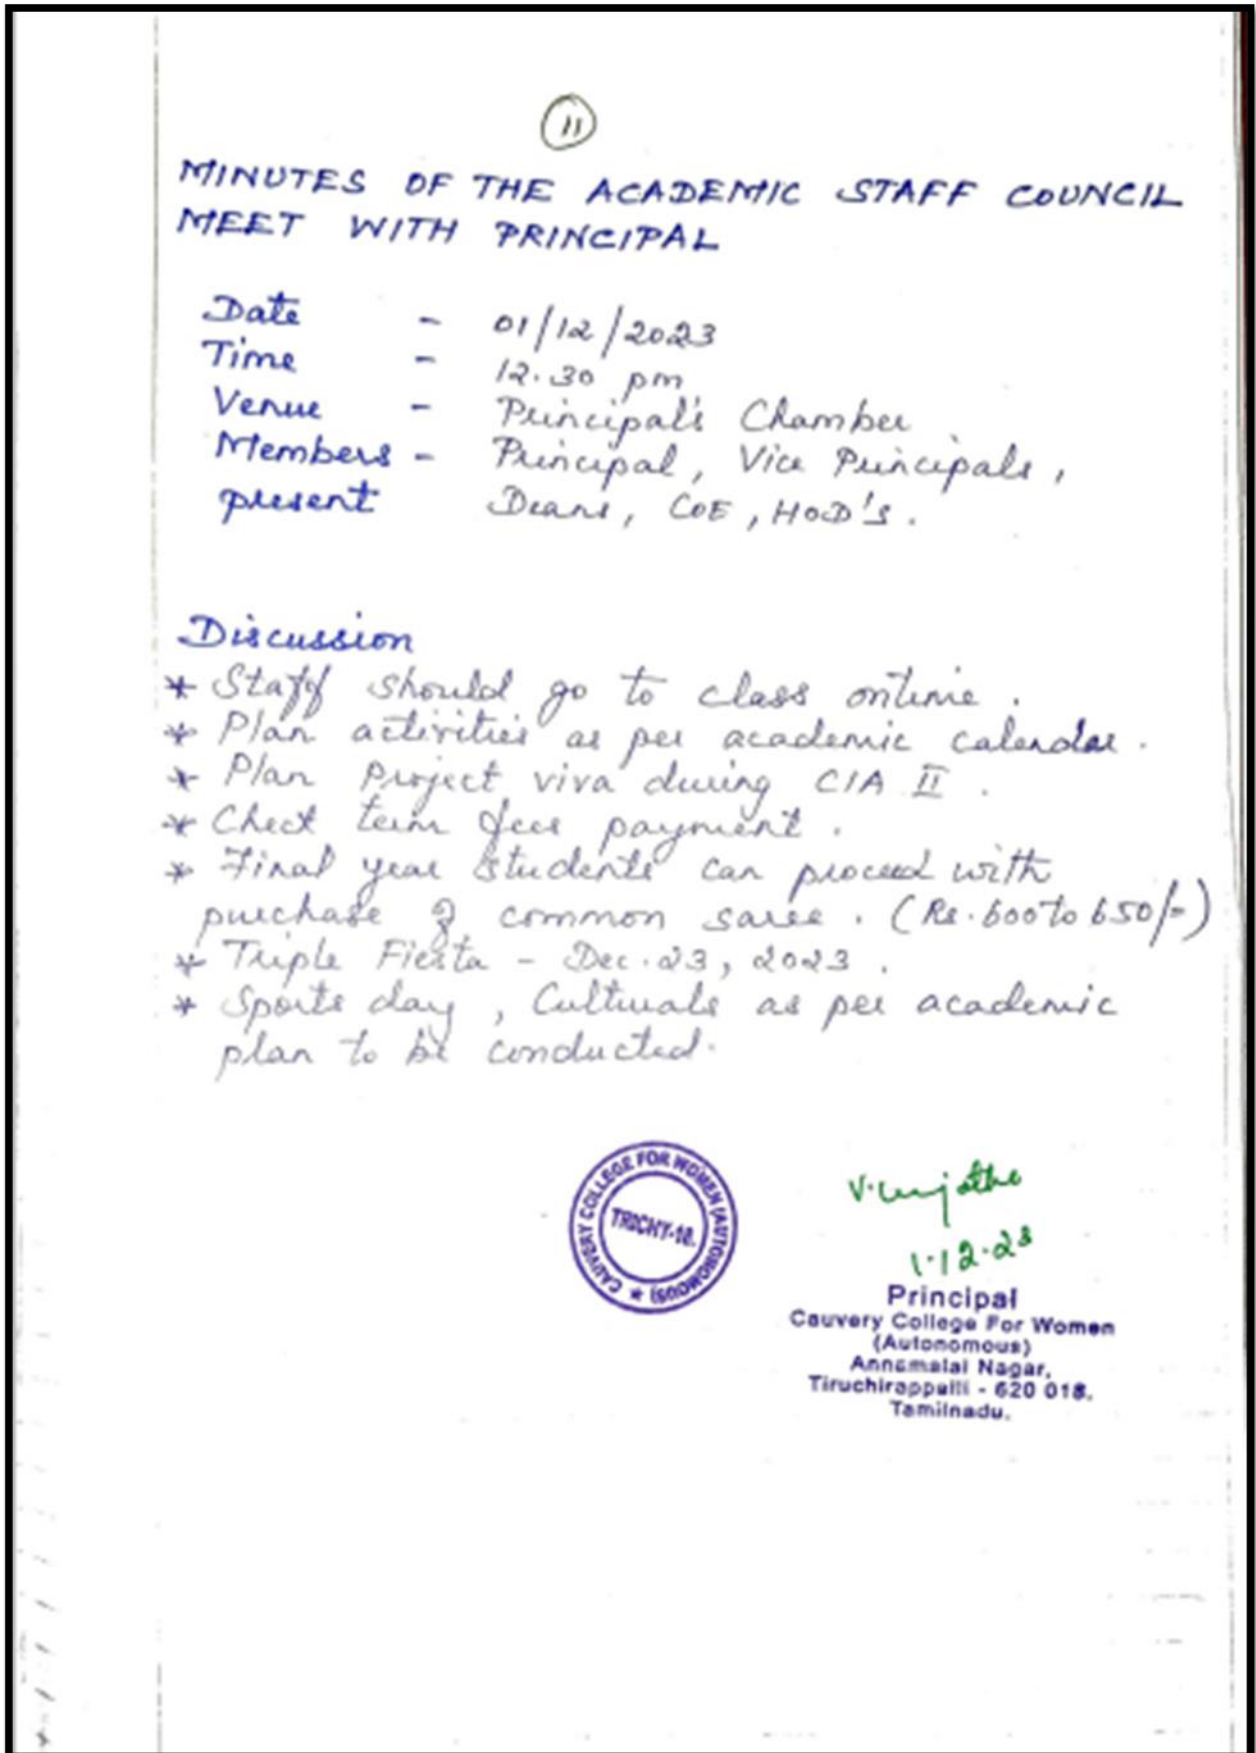 11
MINUTES OF THE ACADEMIC STAFF COUNCIL
MEET WITH PRINCIPAL
Date - 01/12/2023
Time - 12.30 pm
Venue - Principal's Chamber
Members - Principal, Vice Principals,
present Deans, COE, HOD's.
Discussion
* Staff should go to class ontime.
* Plan activities as per academic calendar.
* Plan Project viva during CIA II.
* Check term fees payment.
* Final year students can proceed with
purchase of common saree. (Rs. 600 to 650/-)
* Triple Fiesta - Dec. 23, 2023.
* Sports day, Culturals as per academic
plan to be conducted.
CAUVERY COLLEGE FOR WOMEN (AUTONOMOUS) *
TRICHY-18.
1.12.23
Principal
Cauvery College For Women
(Autonomous)
Annamalai Nagar,
Tiruchirappalli - 620 018.
Tamilnadu.